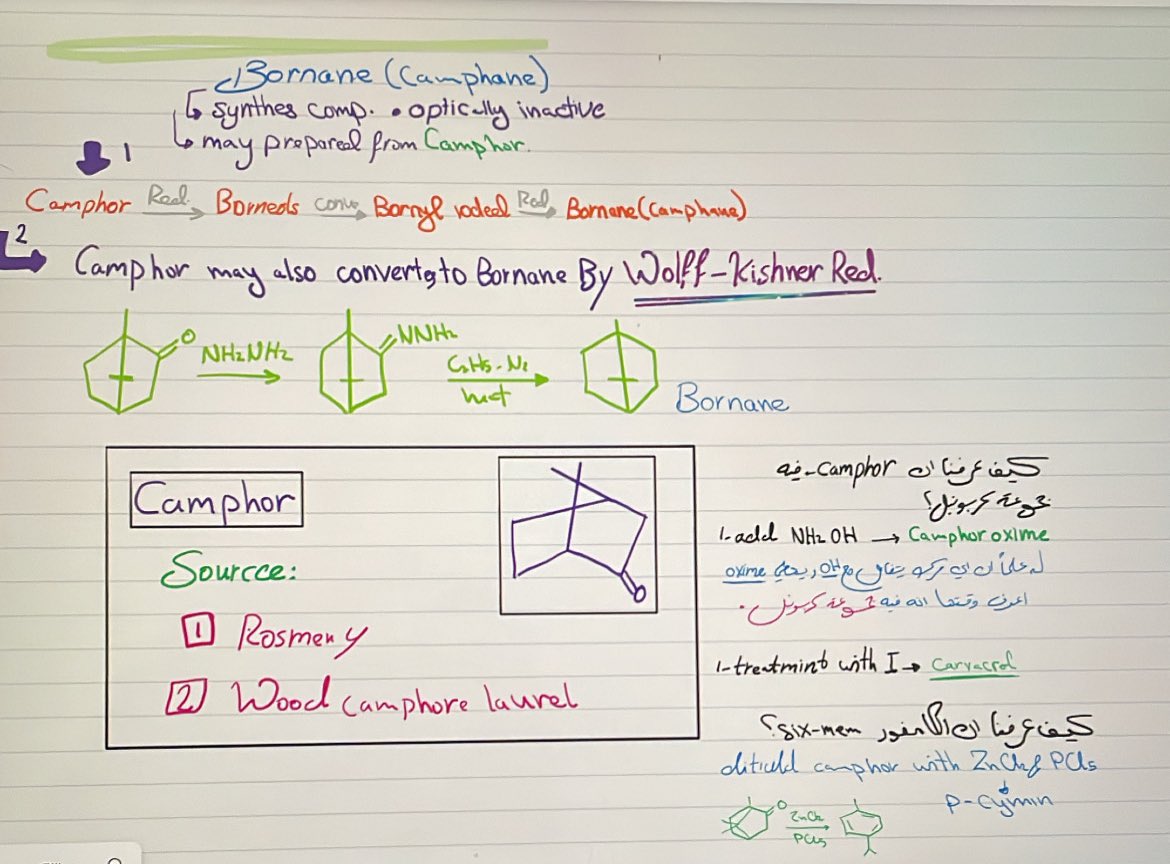 Bornane (Camphane)
synthes comp. • optically inactive
may prepared from Camphor.
1
Camphor Red. Borneols conv. Bornyl ioded Red. Bornane (Camphane)
2
Camphor may also converts to Bornane By Wolff-Kishner Red.
O NH2NH2 NNH2 C2H5-N2
heat
Bornane
Camphor
Sourcce:
1 Rosmery
2 Wood camphore laurel
O
كيف عرفنا ان camphor فيه
مجموعة كربونيل؟
1- add NH2OH → Camphor oxime
OH oxime
اعرف وقتها انه فيه مجموعة كربونيل.
1- treatmint with I → Carvacrol
كيف عرفنا ان الكامفور six-mem؟
camphor with ZnCl2 & PCl5
p-cymin
O ZnCl2
PCl5